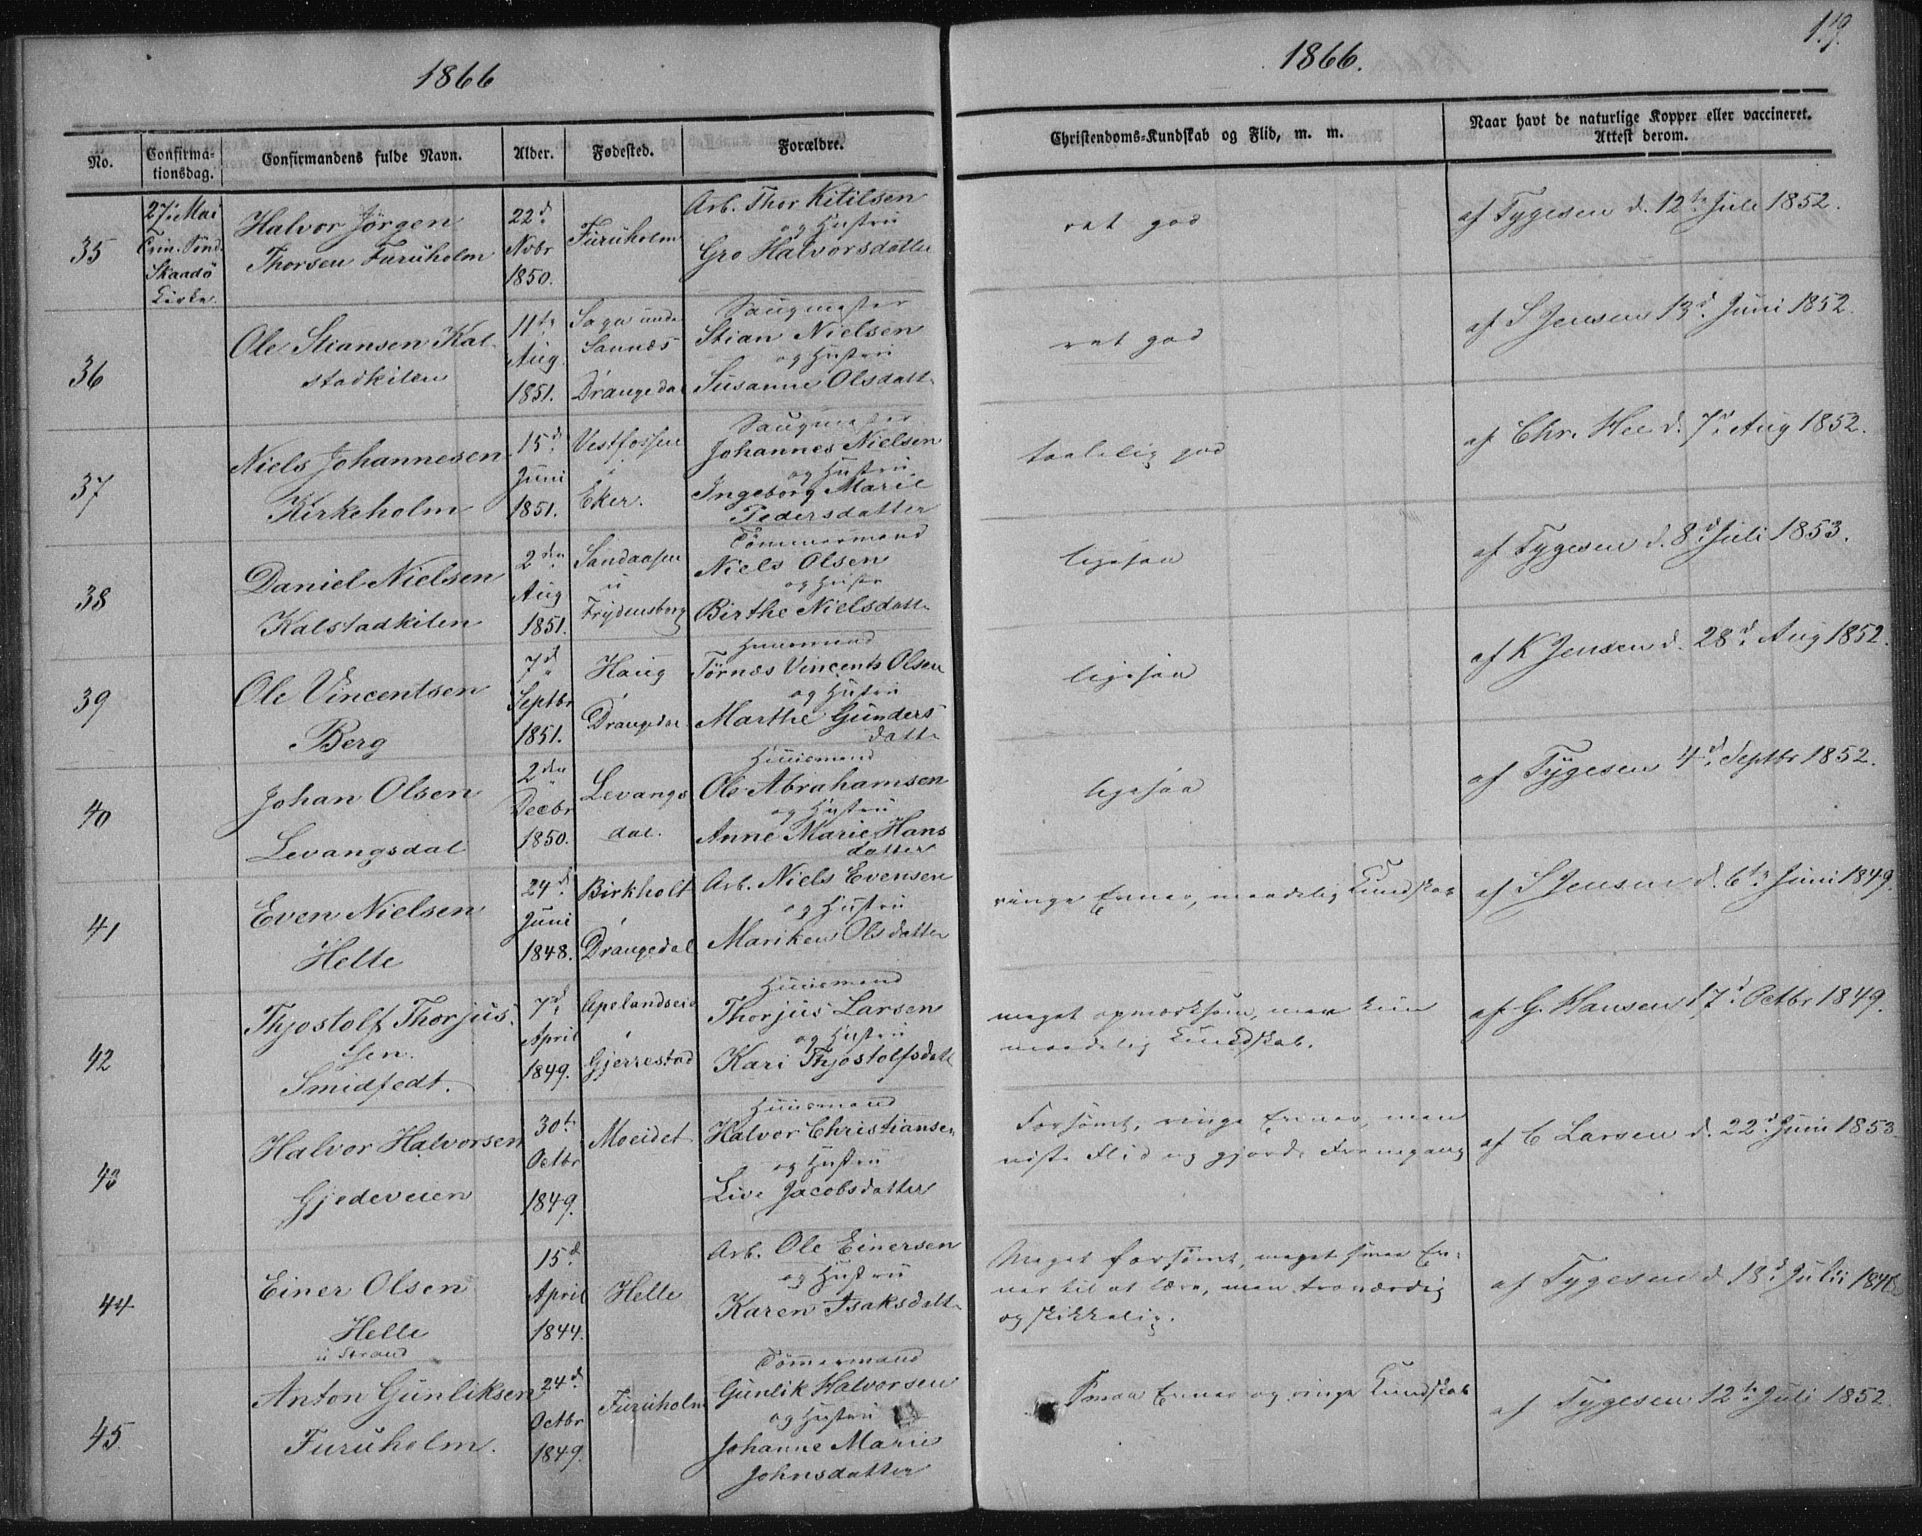 1866
1866.
119.
No.
Confirma-
tionsdag.
Confirmandens fulde Navn.
Alder.
Fødested.
Forældre.
Christendoms-Kundskab og Flid, m. m.
Naar havt de naturlige Kopper eller vaccineret.
Attest derom.
35
27. Mai
Trin. Sönd.
Skaadö
Kirke.
Halvor Jörgen
Thorsen Furuholm
22d
Novbr
1850.
Furuholm
Arb. Thor Kitilsen
og Hustru
Gro Halvorsdatter
ret god
af Tygesen d. 12te Juli 1852.
36
Ole Stiansen Kal-
stadkilen
11te
Aug.
1851.
Saga unde
Sannæs
Drangedal
Saugmester
Stian Nielsen
og Hustru
Susanne Olsdatt
ret god
af S Jensen 13d Juni 1852.
37
Niels Johannesen
Kirkeholm
15d
Juni
1851.
Vestfossen
i
Eker.
Saugmester
Johannes Nielsen
og Hustru
Ingeborg Marie
Pedersdatter
taalelig god
af Chr. Hee d. 7d Aug 1852.
38
Daniel Nielsen
Kalstadkilen
2den
Aug
1851.
Sandaasen
u
Frydensborg
Tömmermand
Niels Olsen
og Hustr
Birthe Nielsdatt
ligesaa
af Tygesen d. 8d Juli 1853.
39
Ole Vincentsen
Berg
7d
Septbr
1851.
Haug
Drangedal
Huusmand
Törnæs Vincents Olsen
og Hustru
Marthe Gunders
datt
ligesaa
af K Jensen d. 28d Aug 1852.
40
Johan Olsen
Levangsdal
2den
Decbr
1850.
Levangs
dal.
Huusmand
Ole Abrahamsen
og Hustru
Anne Marie Hans
datter
ligesaa
af Tygesen 4d Septbr 1852.
41
Even Nielsen
Helle
24d
Juni
1848.
Birkholt
i
Drangedal
Arb. Niels Evensen
og Hustru
Mariken Olsdatter
ringe Evner, maadelig Kundskab
af S Jensen d. 6te Juni 1849.
42
Thjostolf Thorjus-
sen.
Smidfedt.
7d
April
1849.
Apelandseid
i
Gjerrestad
Huusmand
Thorjus Larsen
og Hustru
Kari Thjostolfsdatt
meget opmærksom, men kun
maadelig Kundskab.
af G. Hansen 17d Octbr 1849.
43
Halvor Halvorsen
Gjedeveien
30te
Octbr
1849.
Moeidet
Huusmand
Halvor Christiansen
og Hustru
Live Jacobsdatter
Forsömt, ringe Evner, men
viste Flid og gjorde Fremgang
af C Larsen d. 22d Juni 1853
44
Einer Olsen
Helle
u Strand
15d
April
1844.
Helle
Arb. Ole Einersen
og Hustru
Karen Isaksdatt
Meget forsömt, meget smaa Ev-
ner til at lære, men troværdig
og skikkelig.
af Tygesen d 13d Juli
45
Anton Gunliksen
Furuholm.
24d
Octbr
1849.
Furuholm
Tömmermand
Gunlik Halvorsen
og Hustru
Johanne Marie
Johnsdatter
Smaa Evner og ringe Kundskab
af Tygesen 12te Juli 1852.